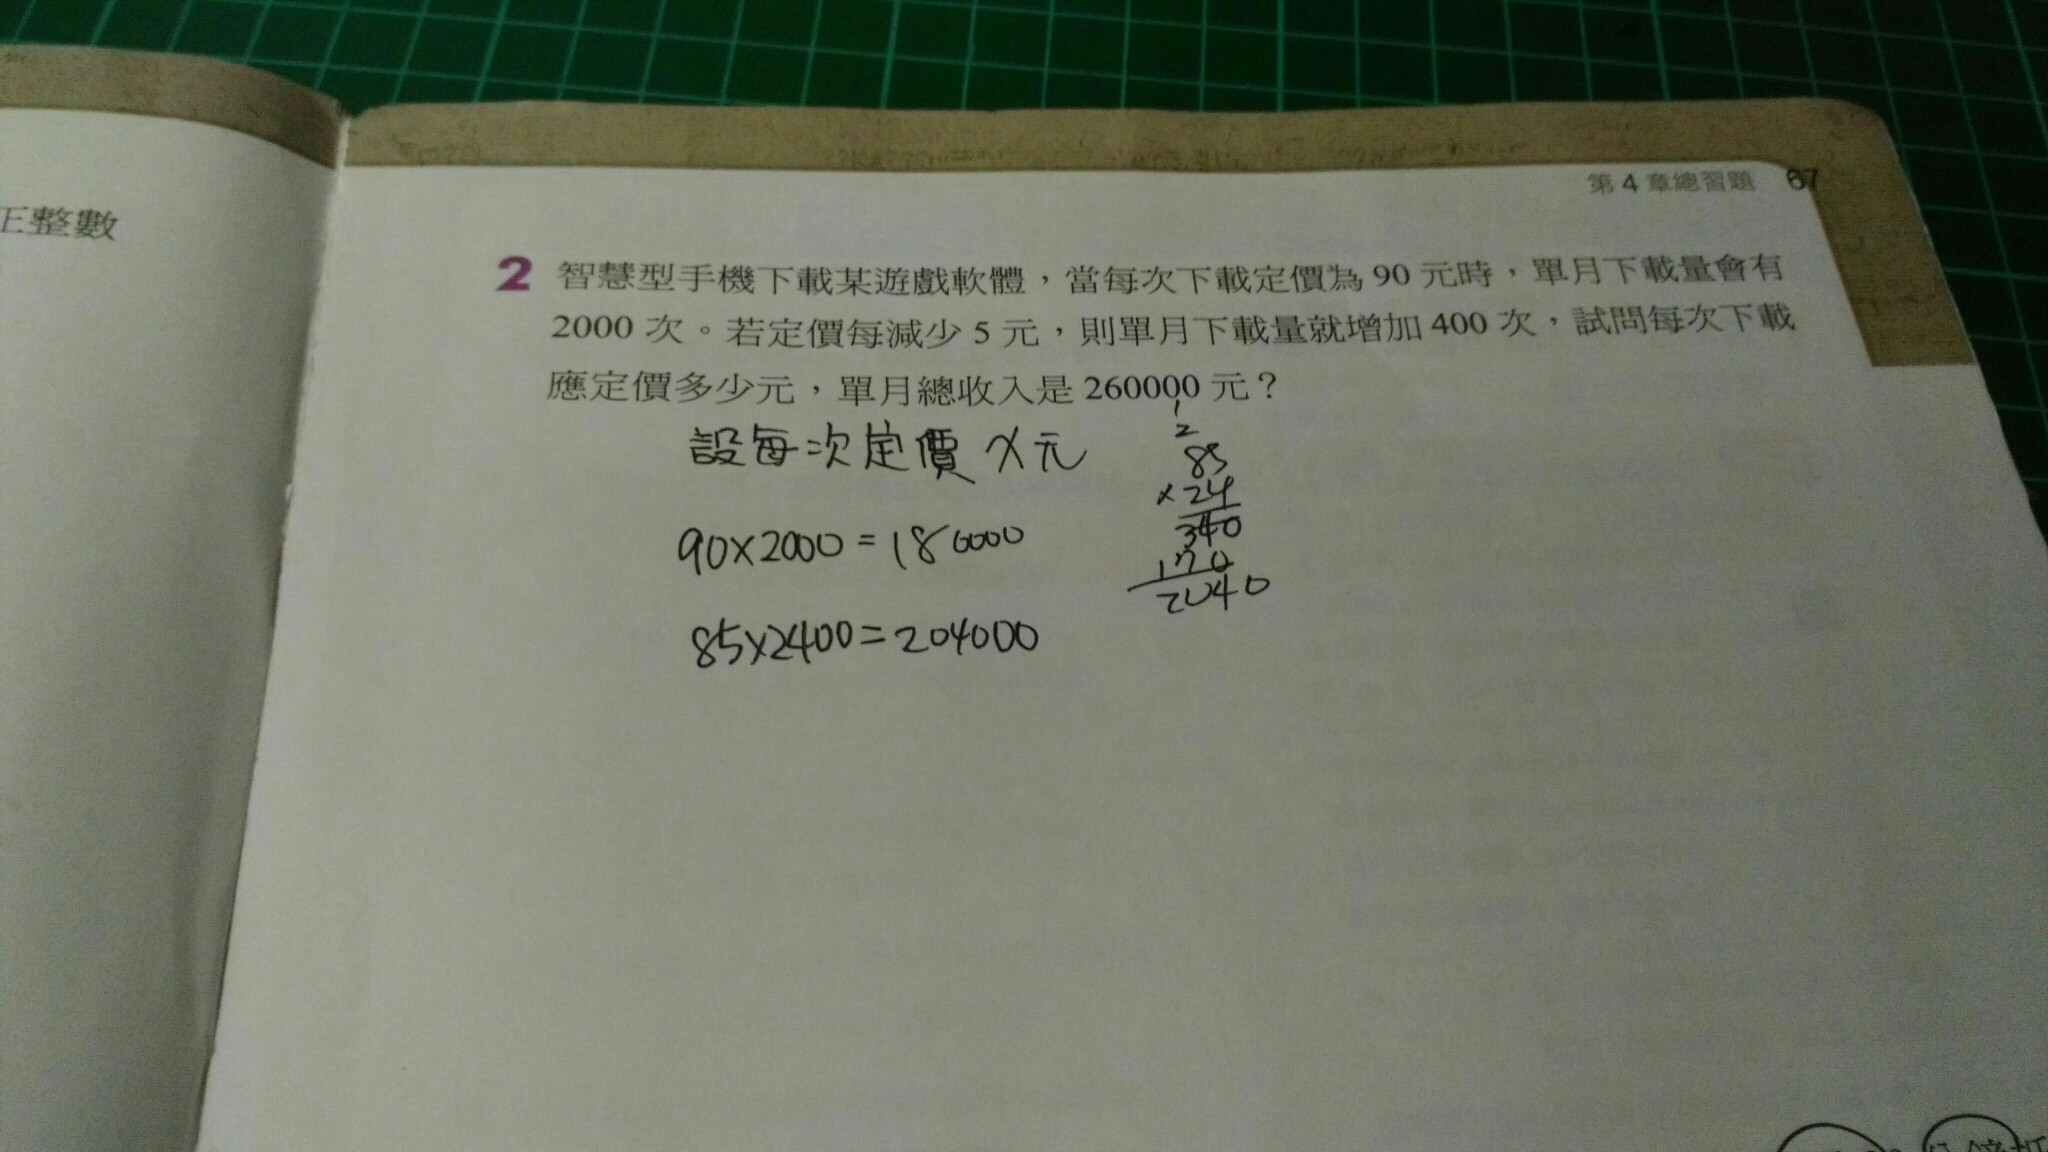 第4章總習題 67
正整數
2 智慧型手機下載某遊戲軟體，當每次下載定價為 90 元時，單月下載量會有
2000 次。若定價每減少 5 元，則單月下載量就增加 400 次，試問每次下載
應定價多少元，單月總收入是 260000 元？
設每次定價 x 元
90×2000=180000
85×2400=204000
1
2
85
×24
340
170
2040